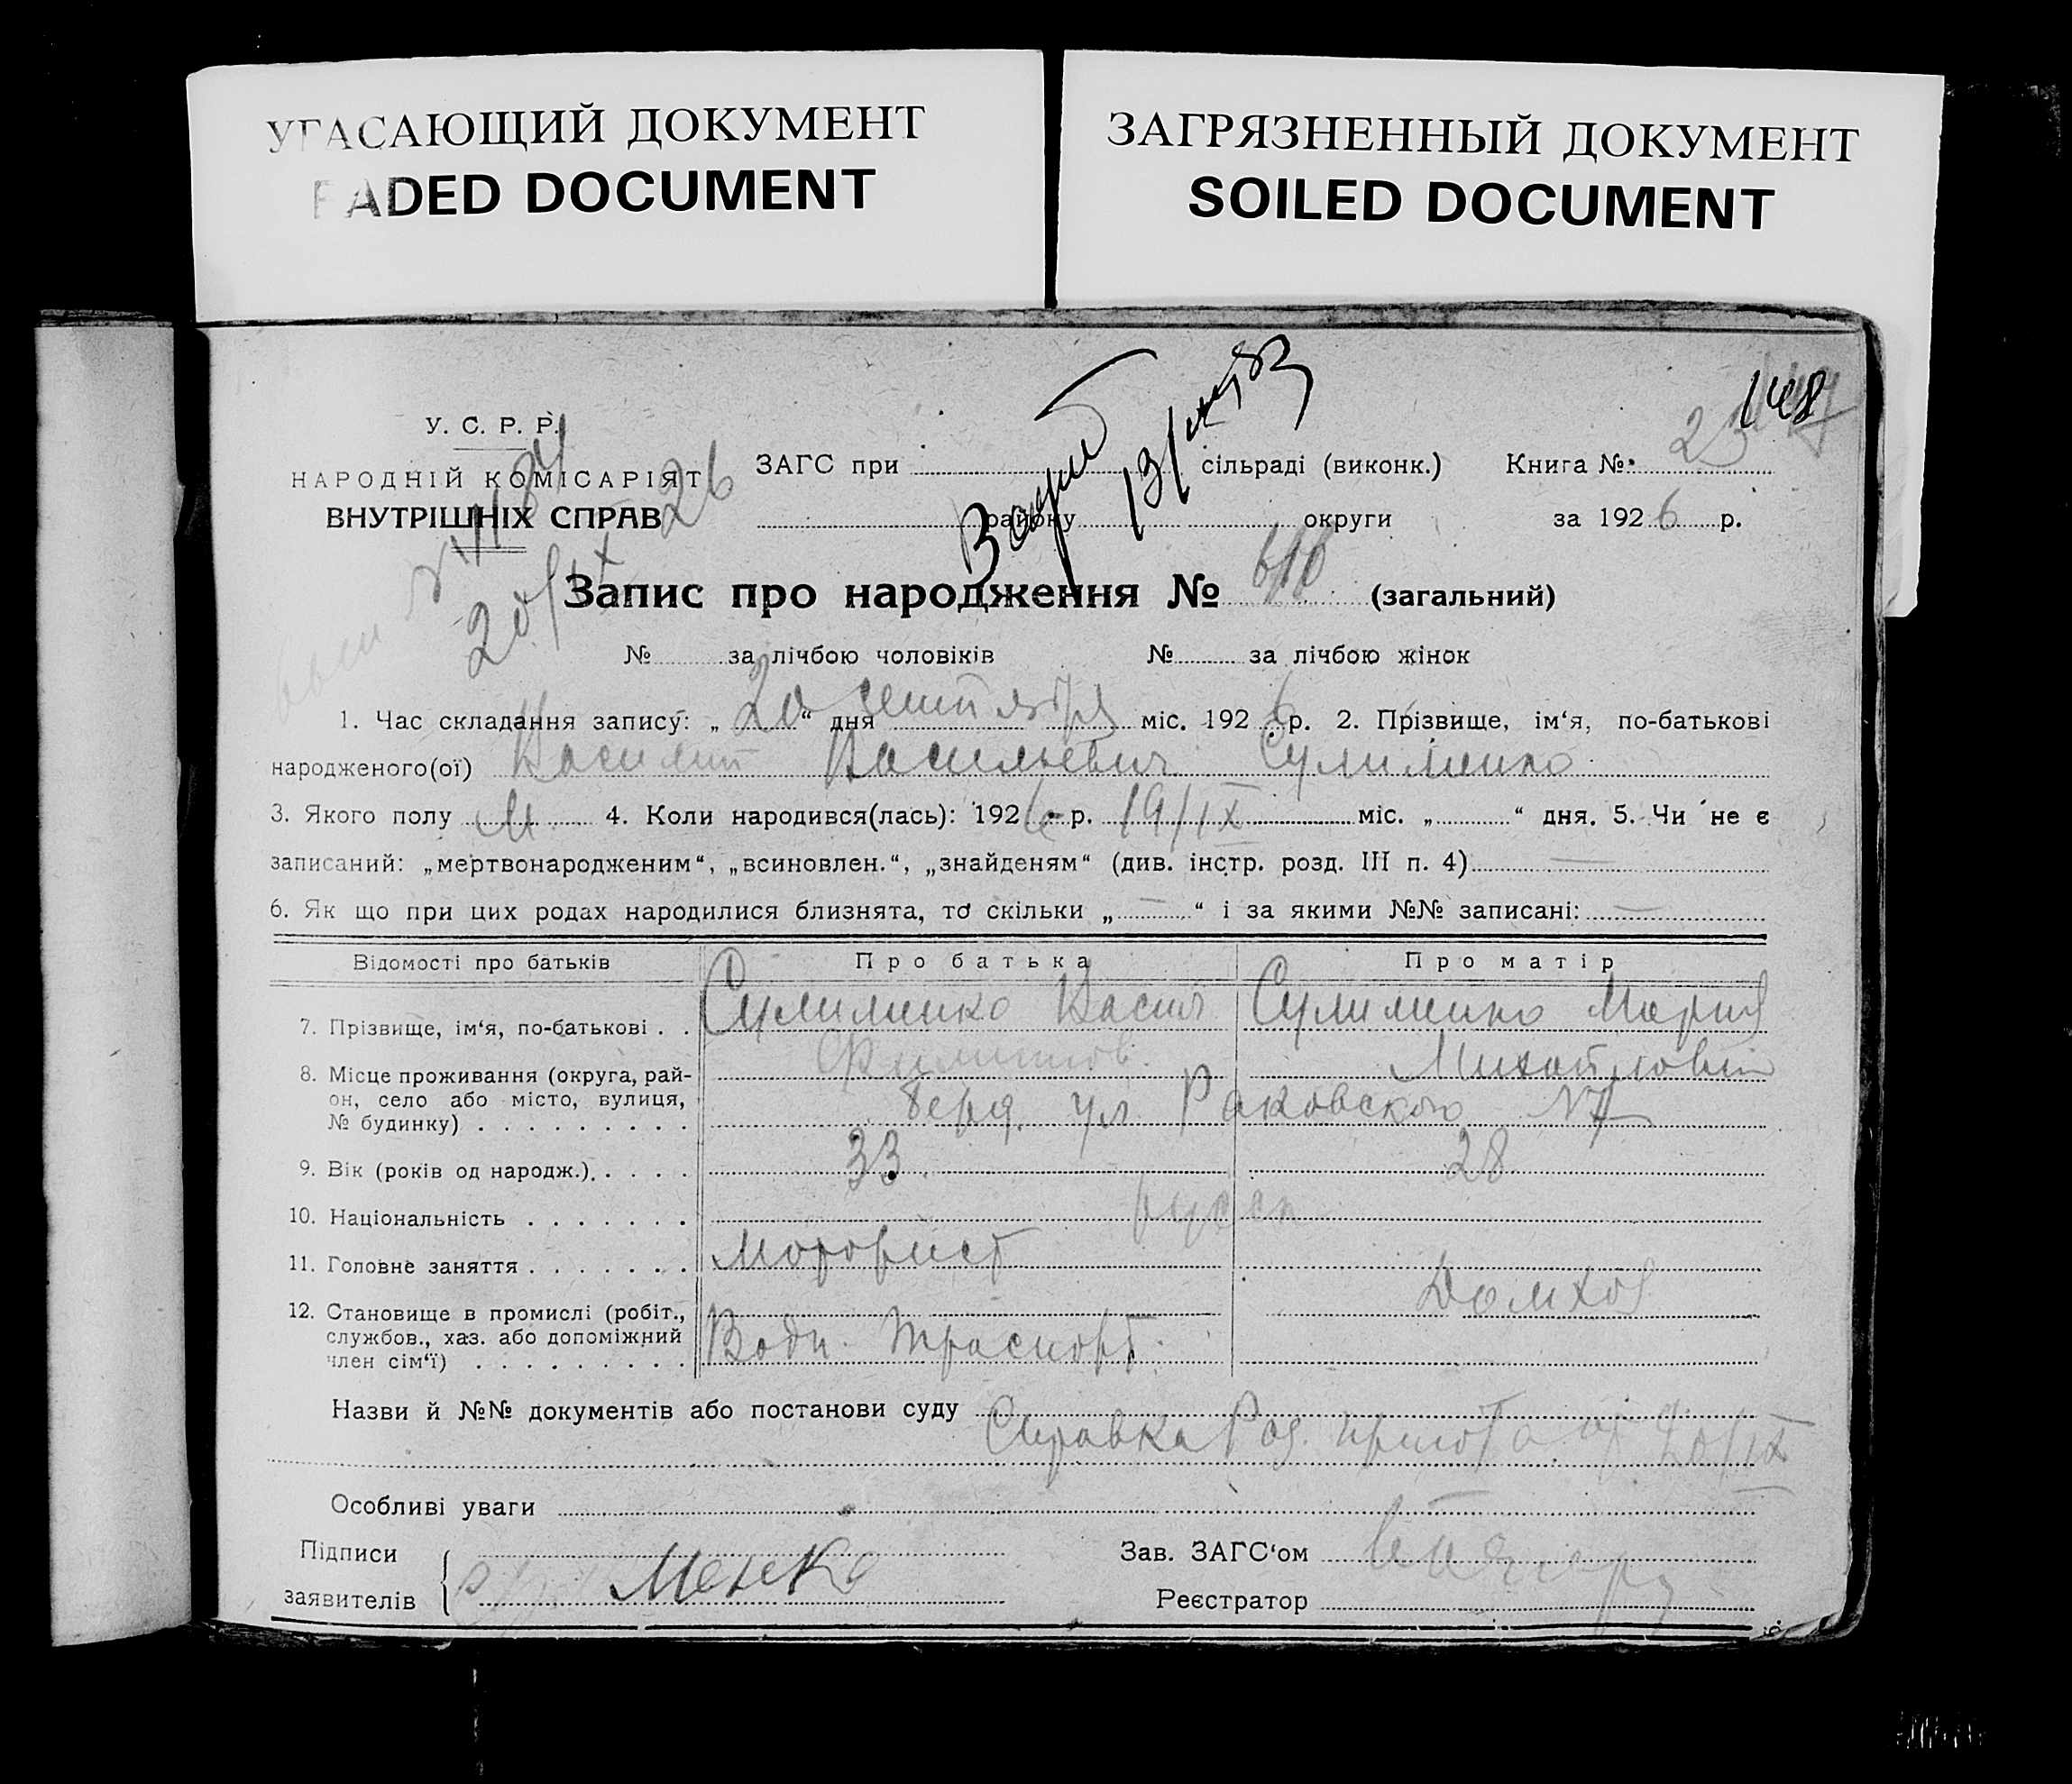 УГАСАЮЩИЙ ДОКУМЕНТ
FADED DOCUMENT
ЗАГРЯЗНЕННЫЙ ДОКУМЕНТ
SOILED DOCUMENT
148
У. С. Р. Р.
НАРОДНІЙ КОМІСАРІЯТ
ВНУТРІШНІХ СПРАВ
26
20/IX
ЗАГС при сільраді (виконк.) Книга №
району округи за 1926 р.
Запис про народження № (загальний)
№ за лічбою чоловіків № за лічбою жінок
1. Час складання запису: „20“ дня сентября міс. 1926 р. 2. Прізвище, ім‘я, по-батькові
народженого(ої) Василий Васильевич Сулименко
3. Якого полу М. 4. Коли народився(лась): 1926 р. 19/IX міс. „ “ дня. 5. Чи не є
записаний: „мертвонародженим“, „всиновлен.“, „знайденям“ (див. інстр. розд. III п. 4) —
6. Як що при цих родах народилися близнята, то скільки „ — “ і за якими №№ записані: —
Відомості про батьків Про батька Про матір
7. Прізвище, ім‘я, по-батькові . . Сулименко Васил Сулименко Мария
Михайловна
8. Місце проживання (округа, рай-
он, село або місто, вулиця,
№ будинку) . . . . . . . . . Берд. ул. Раковского
9. Вік (років од народж.). . . . . 33 28
10. Національність . . . . . . .
11. Головне заняття . . . . . . . Моторист Домхоз
12. Становище в промислі (робіт.,
службов., хаз. або допоміжний
член сім‘ї) . . . . . . . . . Водн. Траспорт.
Назви й №№ документів або постанови суду
Справка Род. приюта от 20/IX
Особливі уваги
Підписи
заявителів Менко
Зав. ЗАГС‘ом
Реєстратор